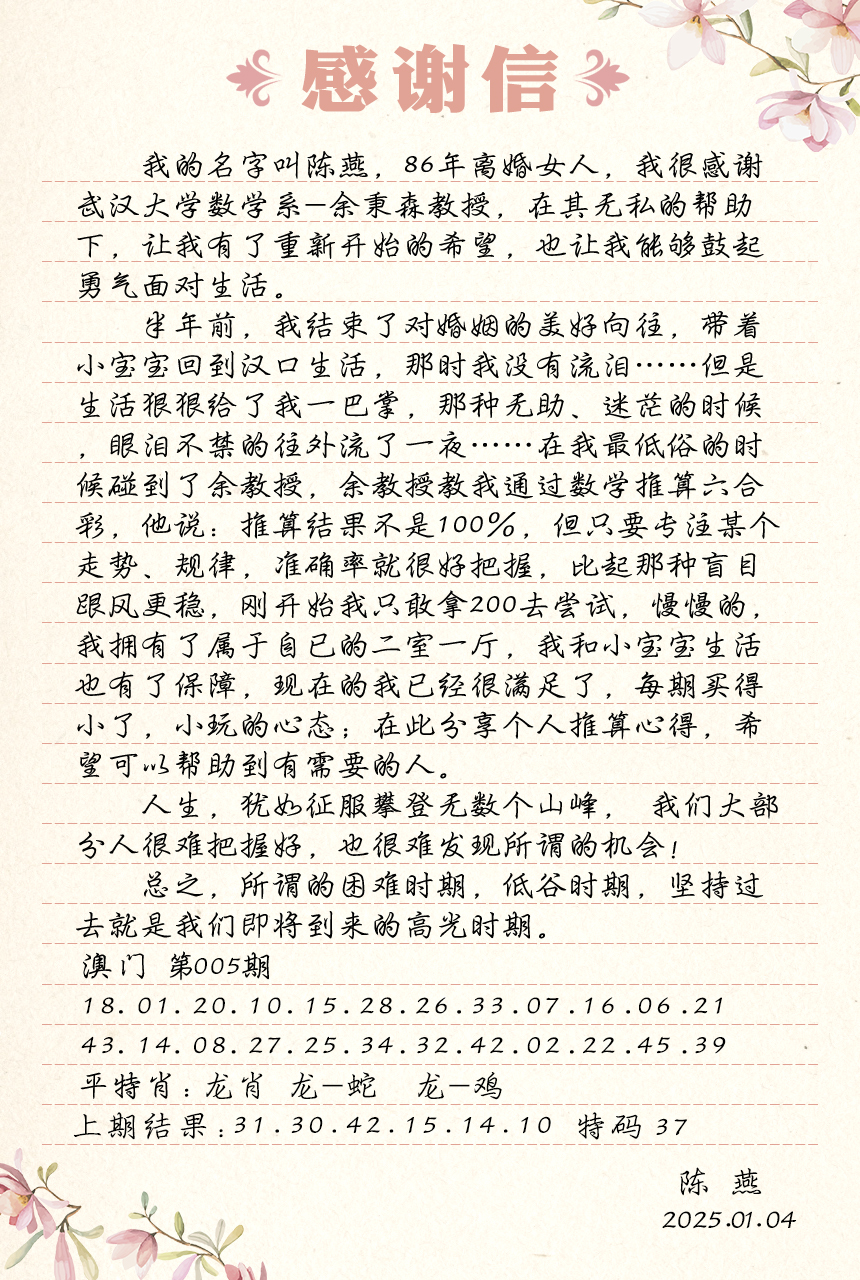 感谢信
我的名字叫陈燕，86年离婚女人，我很感谢
武汉大学数学系—余秉森教授，在其无私的帮助
下，让我有了重新开始的希望，也让我能够鼓起
勇气面对生活。
半年前，我结束了对婚姻的美好向往，带着
小宝宝回到汉口生活，那时我没有流泪……但是
生活狠狠给了我一巴掌，那种无助、迷茫的时候
，眼泪不禁的往外流了一夜……在我最低俗的时
候碰到了余教授，余教授教我通过数学推算六合
彩，他说：推算结果不是100%，但只要专注某个
走势、规律，准确率就很好把握，比起那种盲目
跟风更稳，刚开始我只敢拿200去尝试，慢慢的，
我拥有了属于自已的二室一厅，我和小宝宝生活
也有了保障，现在的我已经很满足了，每期买得
小了，小玩的心态；在此分享个人推算心得，希
望可以帮助到有需要的人。
人生，犹如征服攀登无数个山峰， 我们大部
分人很难把握好，也很难发现所谓的机会！
总之，所谓的困难时期，低谷时期，坚持过
去就是我们即将到来的高光时期。
澳门 第005期
18.01.20.10.15.28.26.33.07.16.06.21
43.14.08.27.25.34.32.42.02.22.45.39
平特肖：龙肖 龙—蛇 龙—鸡
上期结果：31.30.42.15.14.10 特码 37
陈 燕
2025.01.04